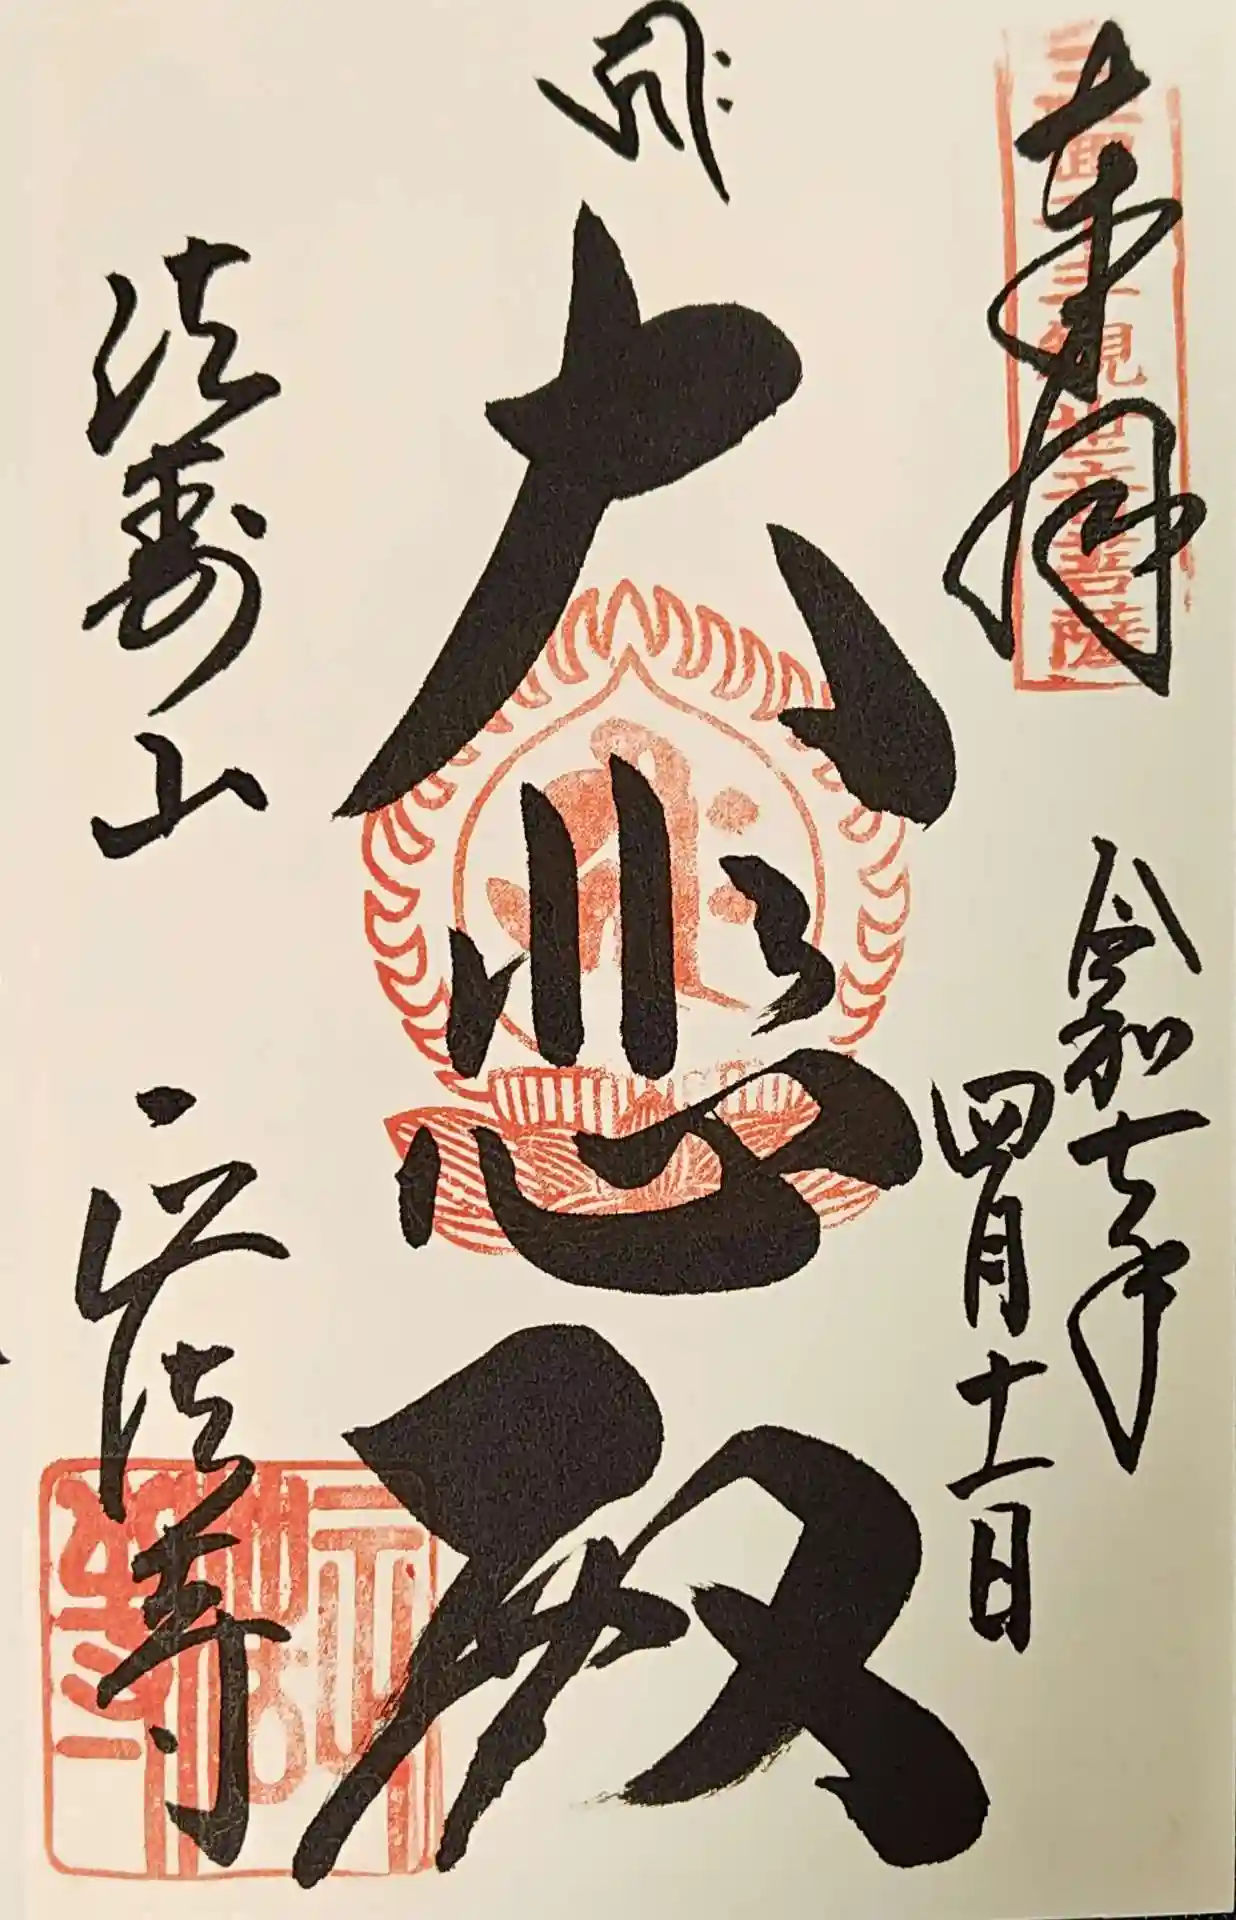 奉拝
三面千手観世音菩薩
令和七年
四月十二日
大悲殿
法寿山
正法寺